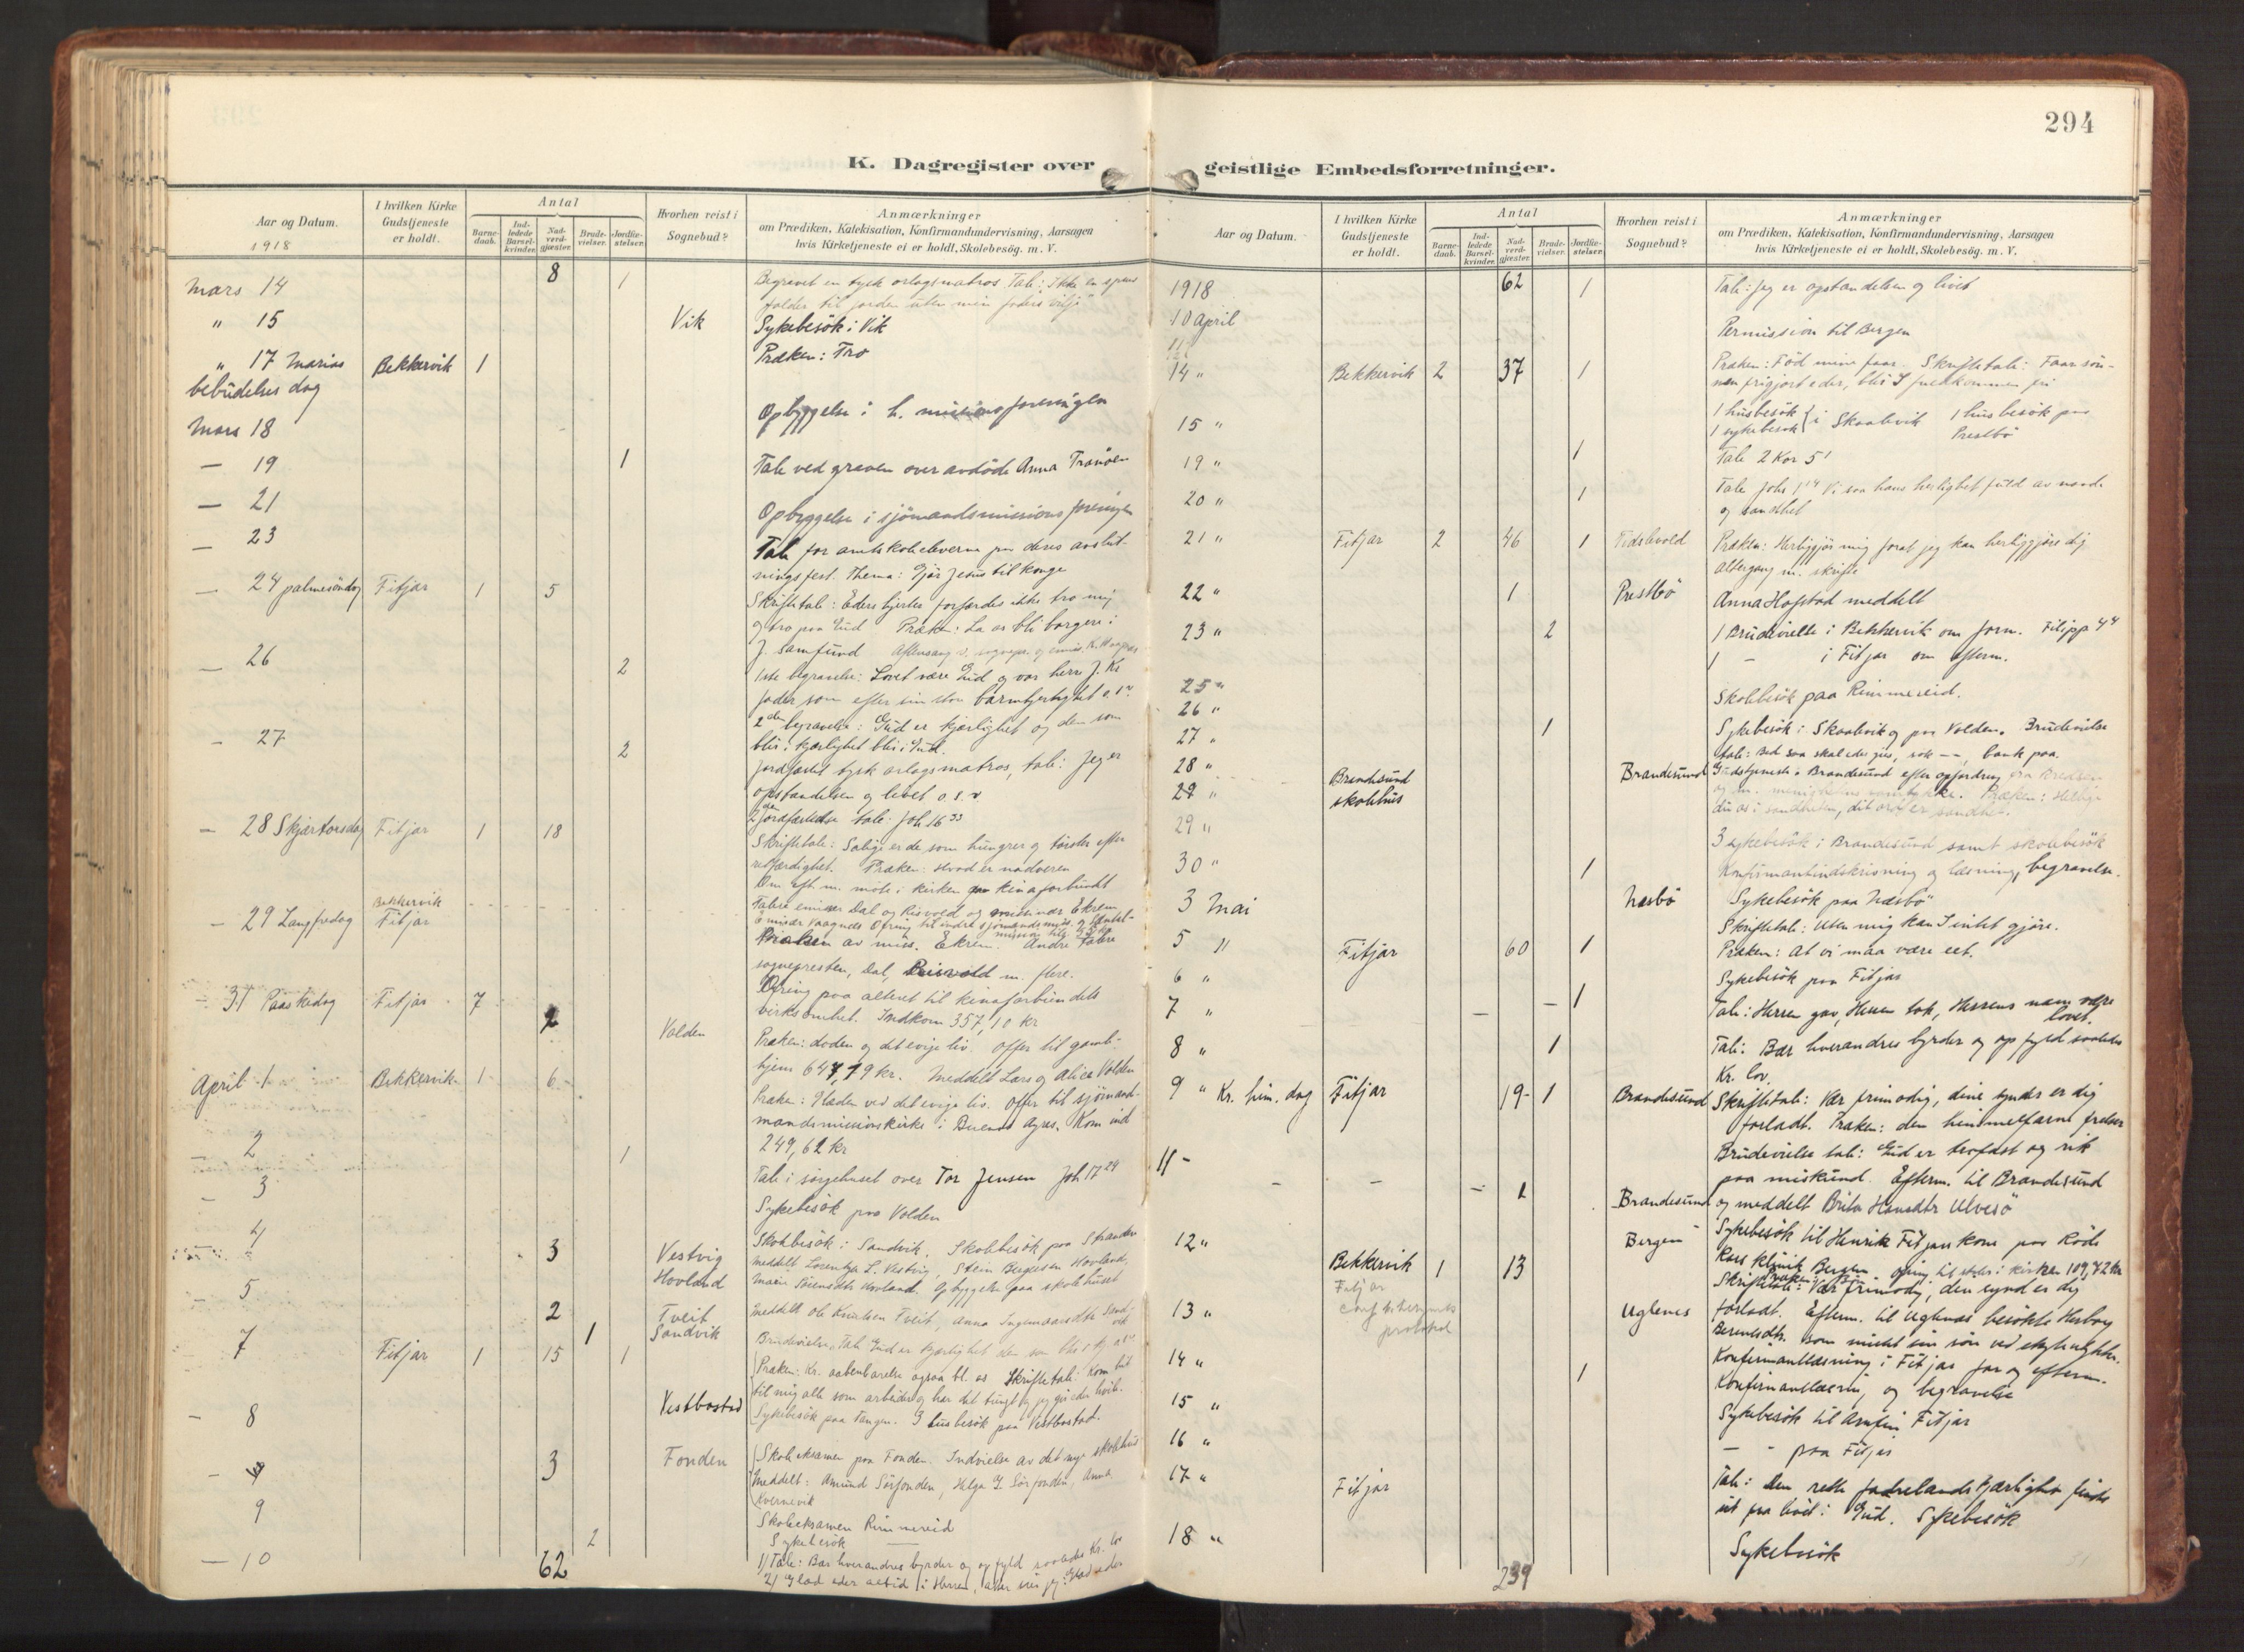 294
K. Dagregister over
geistlige Embedsforretninger.
Aar og Datum.
1918
I hvilken Kirke
Gudstjeneste
er holdt.
Antal
Barne-
daab.
Ind-
ledede
Barsel-
kvinder.
Nad-
verd-
gjæster.
Brude-
vielser.
Jordfæ-
stelser.
Hvorhen reist i
Sognebud?
Anmærkninger
om Prædiken, Katekisation, Konfirmandundervisning, Aarsagen
hvis Kirketjeneste ei er holdt, Skolebesög. m. V.
Mars 14 8 1 Begravet en tysk orlogsmatros Tale: Ikke en spurv
falder til jorden uten min faders vilje
" 15 Vik Sykebesök i Vik
" 17 Marias Bekkervik 1 Præken: Tro
bebudelses dag
Mars 18 Opbyggelse i h. missionsforeningen
— 19 1 Tale ved graven over avdöde Anna Tranöen
— 21 Opbyggelse i sjömandsmissions foreningen
— 23 Tale for amtskoleeleverne paa deres avslut-
ningsfest. Thema: Gjör Jesus til konge
— 24 palmesöndag Fitjar 1 5 Skriftetale: Eders hjerter forfærdes ikke tro mig
og tro paa Gud Præken: La os bli borgere i
J. samfund
— 26 2 1ste begravelse: Lovet være Gud og vor herre J. Kr.
fader som efter sin store barmhjertighet
2den begravelse: Gud er kjærlighet og den som
blir i kjærlighet blir i Gud.
— 27 2 Jordfæstet tysk orlogsmatros, tale: Jeg er
opstandelsen og livet o.s.v
2den jordfæstelse tale: Joh 16 33
— 28 Skjærtorsdag Fitjar 1 18 Skriftetale: Salige er de som hungrer og törster efter
retfærdighet. Præken: Hvad er nadveren
Om eft m. möte i kirken kinaforbundet
Bekkervik
— 29 Langfredag Fitjar Talere Dal og Risvold og missionær Ekrem
Præken av miss. Ekrem. Andre talere
sognepresten, Dal, Risvold m. flere.
— 31 Paaskedag Fitjar 7 2 Ofring paa alteret til kinaforbundets
virksomhet. Indkom 357,10 kr
Volden Præken: döden og det evige liv. Offer til gamle-
hjem 647,79 kr. Meddelt Lars og Alice Volden
April 1 Bekkervik 1 6 Præken: Glæden ved det evige liv. Offer til sjömand-
mandsmissionskirke i Buenos Ayres. Kom ind
249,62 kr
— 2 1 Tale i sörgehuset over Tor Jensen Joh 17 24
— 3 Sykebesök paa Volden
4 3 Vestvig Skolebesök i Sandvik. Skolebesök paa Strander
Hovland Meddelt L. Vestvig, Stein Birgersen Hovland,
Hovland. Opbyggelse paa skolehuset.
— 5 2 Tveit Meddelt Ole Knutsen Tveit, Anna Ingemarsdtr Sand-
Sandvik 1 vik
7 Fitjar 1 15 1 Brudevielse, Tale Gud er kjærlighet den som blir i kj
Præken: Kr. aabenbarelse ogsaa bl. os Skriftetale: Kom hit
til mig alle som arbeider og har det tungt og jeg gir eder hvile.
— 8 Vestbostad Sykebesök paa Tangen. 3 husbesök paa Vestbostad.
— 9 3 Fonden Skoleeksamen paa Fonden. Indvielse av det nye skolehus
Meddelt: Amund Sörfonden, Helga G. Sörfonden, Anna
Kvernevik
9 Skoleeksamen Rimmereid
2 Sykebesök
— 10 62 1) Tale: Bær hverandres byrder og opfyld saaledes Kr. lov
2) Glæd eder altid i Herren, atter sier jeg: Glæd eder
Aar og Datum.
I hvilken Kirke
Gudstjeneste
er holdt.
Antal
Barne-
daab.
Ind-
ledede
Barsel-
kvinder.
Nad-
verd-
gjæster.
Brude-
vielser.
Jordfæ-
stelser.
Hvorhen reist i
Sognebud?
Anmærkninger
om Prædiken, Katekisation, Konfirmandundervisning, Aarsagen
hvis Kirketjeneste ei er holdt, Skolebesög. m. V.
1918 62 1 Tale: Jeg er opstandelsen og livet
10 April Permission til Bergen
11
14 " Bekkervik 2 37 1 Præken: Fød mine faar. Skriftetale: Faar sön-
nen frigjort eder, blir I fuldkommen fri
15 " 1 husbesök 1 sykebesök i Skaalevik 1 husbesök paa
Prestbö
19 " 1 Tale 2 Kor 5 1
20 " 1 Tale Johs 1 14 Vi saa hans herlighet fuld av naade
og sandhet
21 " Fitjar 2 46 1 Præken: Herliggjör mig forat jeg kan herliggjöre dig
Altergang m. skrifte
22 " 1 Prestbö Anna Hofstad meddelt
23 " 2 1 Brudevielse i Bekkervik om form. Filipp 4 4
1 — i Fitjar om efterm.
25 " Skolebesök paa Rimmereid.
26 "
27 " 1 Sykebesök i Skaalevik og paa Volden. Brudevielse
tale: Bed saa skal eder gies, søk —, bank paa.
28 " Brandesund Brandesund Gudstjeneste i Brandesund efter opfordring
29 " skolehus Præken: Hellige
du os i sandheten, dit ord er sandhet.
29 " 3 sykebesök i Brandesund samt skolebesök
30 " 1 Konfirmantindskrivning og læsning, begravelse.
3 Mai Næsbö Sykebesök paa Næsbö
5 " Fitjar 60 1 Skriftetale: Uten mig kan I intet gjöre.
Præken: At vi maa være eet.
6 " Sykebesök paa Fitjar
7 " — 1 Tale: Herren gav, Herren tok, Herrens navn være
lovet.
8 " 1 Tale: Bær hverandres byrder og opfyld saaledes
Kr. lov.
9 " Kr. him. dag Fitjar 19 1 Brandesund Skriftetale: Vær frimodig, dine synder er dig
forladt. Præken: den himmelfarne frelser
Brudevielse tale: Gud er trofast og rik
paa miskund. Efterm. til Brandesund
11 - — — — 1 Brandesund og meddelt Brita Hansdtr Ulvesö
12 " Bergen Sykebesök til Henrik Fitjars kone paa Röde
Kors klinik Bergen. ofring til i kirken 109,72 kr
Bekkervik 1 13 Skriftetale: Vær frimodig, den synd er dig
Fitjar
13 " Uglenes forladt. Efterm. til Uglenes besökte Herborg
Berentsdtr. som mistet sin sön ved
14 " Konfirmantlæsning i Fitjar for og efterm.
1 Konfirmantlæsning, og begravelse
15 " Sykebesök til Arnfin Fitjar
16 " — " paa Fitjar
17 " Fitjar Tale: Den rette fædrelandskjærlighet
Gud. Sykebesök
18 " Sykebesök
239